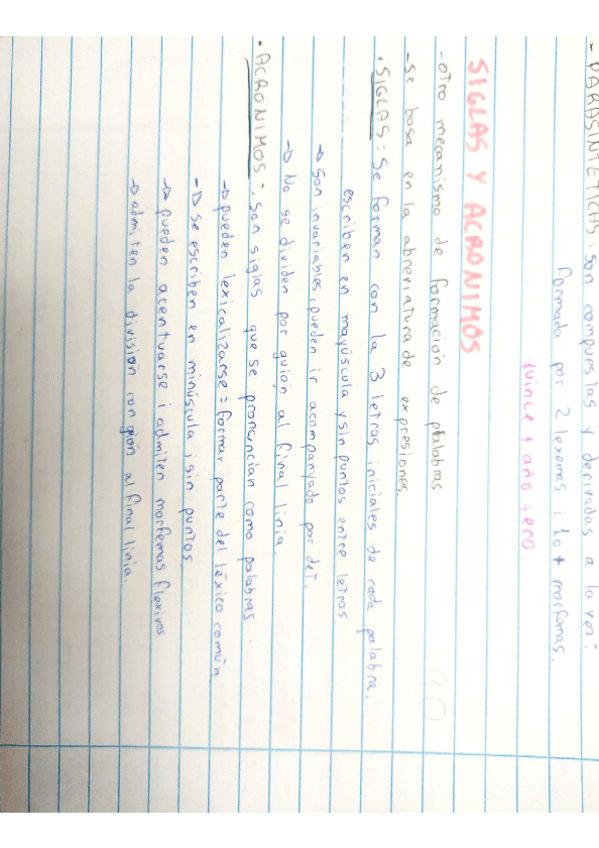 - PARASINTETICAS: son compuestas y derivadas a la vez:
formada por 2 lexemas i 1 o + morfemas.
quince + año + ero
SIGLAS Y ACRONIMOS
- otro mecanismo de formación de palabras
- se basa en la abreviatura de expresiones.
• SIGLAS: Se forman con la 3 letras iniciales de cada palabra.
escriben en mayúscula y sin puntos entre letras
→ Son invariables, pueden ir acompanyado por det.
→ No se dividen por guión al final linia.
• ACRÓNIMOS: Son siglas que se pronuncian como palabras.
→ pueden lexicalizarse = formar parte del léxico común
→ Se escriben en minúscula i sin puntos
→ pueden acentuarse i admiten morfemas flexivos
→ admiten la división con guión al final linia.